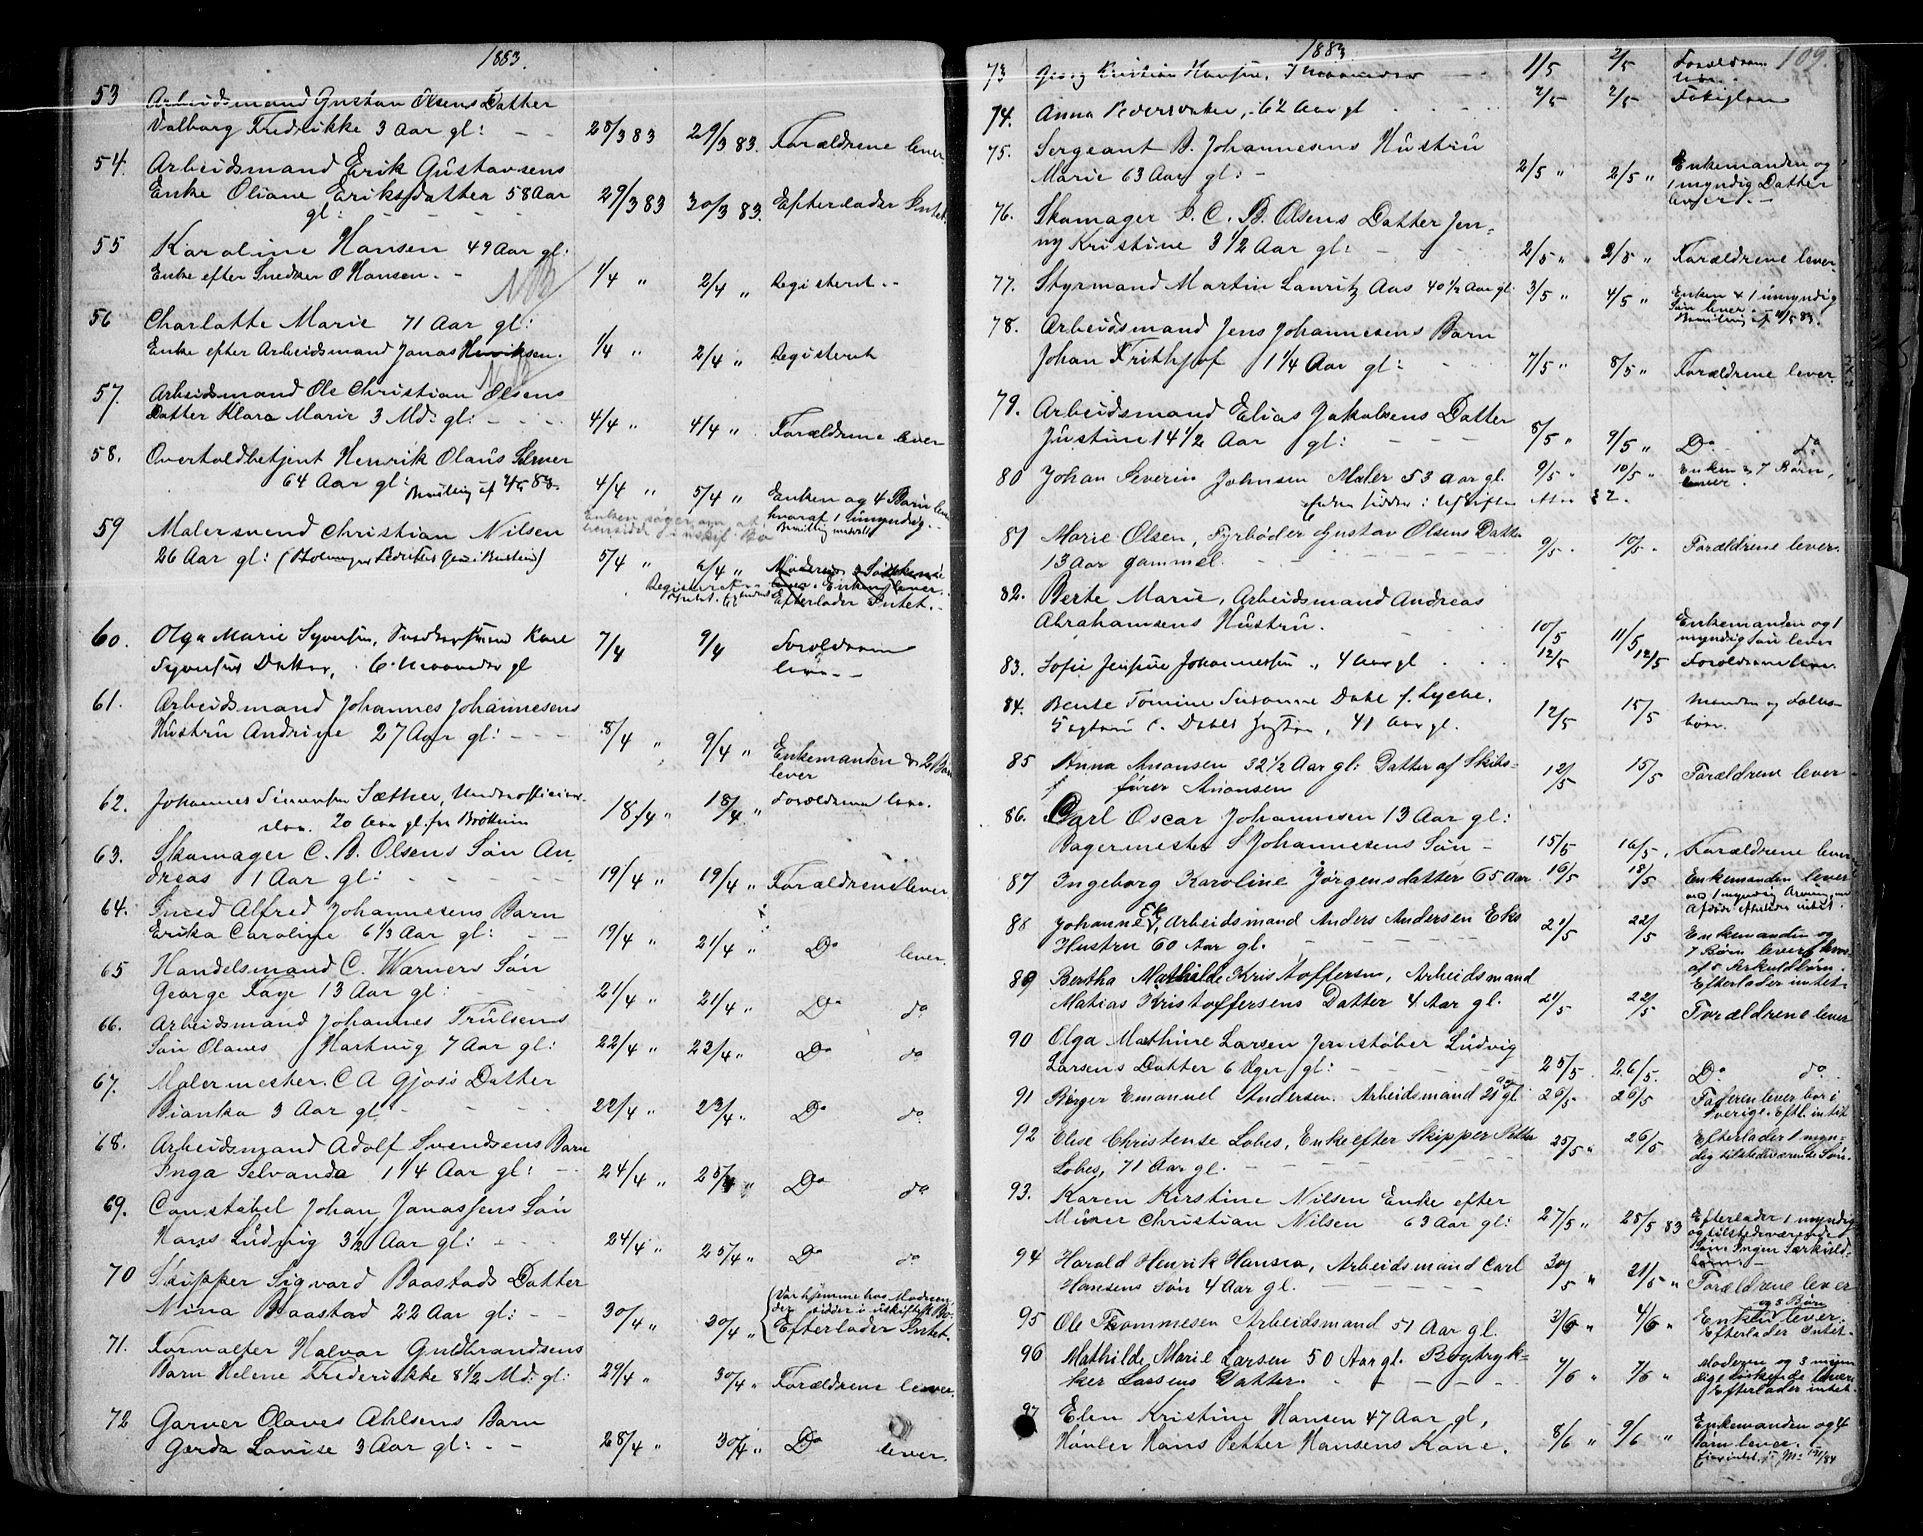 1883.
53 Arbeidsmand Gustav Olsens Datter
Valborg Fredrikke 3 Aar gl: - - 28/3 83 29/3 83. Forældrene lever
54. Arbeidsmand Erik Gustavsens
Enke Oliane Eriksdatter 58 Aar
gl: - - - - 29/3 83 30/3 83. Efterlader Intet.
55 Karoline Hansen 49 Aar gl:
Enke efter Snedker O Hansen. - 1/4 " 2/4 " Registeret. -
NB
56 Charlotte Marie 71 Aar gl:
Enke efter Arbeidsmand Jonas Henriksen. 1/4 " 2/4 " Registeret
NB
57. Arbeidsmand Ole Christian Olsens
Datter Klara Marie 3 Md: gl: - - - 4/4 " 4/4 " Forældrene lever
58. Overtoldbetjent Henrik Olaus
64 Aar gl: 4/4 " 5/4 " Enken og 4 Børn lever
hvoraf 1 umyndig. -
59 Malersvend Christian Nilsen
26 Aar gl: 5/4 " 6/4 "
Efterlader Intet. -
60. Olga Marie Syversen,
Syversens Datter, 6 Maaneder gl 7/4 9/4 Foreldrene
leve - -
61. Arbeidsmand Johannes Johannesens
Hustru Andrine 27 Aar gl: - - - 8/4 " 9/4 " Enkemanden & 2 Børn
lever
62. Johannes Simensen Sæther, Underofficier-
elev. 20 Aar gl. fra Brøttum 18/4 " 18/4 " Foreldrene leve.
63. Skomager C. B. Olsens Søn An-
dreas 1 Aar gl: - - - - 19/4 " 19/4 " Forældrene lever
64. Smed Alfred Johannesens Barn
Erika Caroline 6 1/3 Aar gl: - - 19/4 " 21/4 " Do lever.
65 Handelsmand C. Wærners Søn
George Faye 13 Aar gl: 21/4 " 21/4 " Do do
66. Arbeidsmand Johannes Trulsens
Søn Olaves Hartvig 7 Aar gl: 22/4 " 23/4 " Do do
67. Malermester C A Gjøss Datter
Bianka 3 Aar gl - - - - 22/4 " 23/4 " Do do
68. Arbeidsmand Adolf Svendsens Barn
Inga Selvanda 1 1/4 Aar gl: - 24/4 " 25/4 " Do do
69. Constabel Johan Jonassens Søn
Hans Ludvig 3 1/2 Aar gl: - - - 24/4 " 25/4 " Do do
70 Skipper Sigvard Baastads Datter
Nina Baastad 22 Aar gl: - 30/4 " 30/4 " (Var hjemme hos Moderen
der sidder i uskiftet Bo
Efterlader Intet.
71. Forvalter Halvor Guldbrandsens
Barn Helene Frederikke 8 1/2 Md: gl: 29/4 " 30/4 " Forældrene lever.
72 Garver Olaves Ahlsens Barn
Gerda Lovise 3 Aar gl: - - 28/4 " 30/4 " Do lever.
1883. 109.
73 Georg Kristian Hansen, 7 Maaneder 1/5 2/5 Foreldrene
leve.
74. Anna Pedersdatter, 62 Aar gl 2/5 2/5 Fattiglem
75. Sergeant B. Johannesens Hustru
Marie 63 Aar gl: - 2/5 " 2/5 " Enkemanden og
1 myndig Datter
lever. -
76. Skomager P. C. B. Olsens Datter Jen-
ny Kristine 3 1/2 Aar gl: - 2/5 " 3/5 " Forældrene lever.
77. Styrmand Martin Lauritz Aas 40 1/2 Aar gl 3/5 " 4/5 " Enken & 1 umyndig
Søn lever.
78. Arbeidsmand Jens Johannesens Barn
Johan Frithjof 1 1/4 Aar gl: 7/5 " 8/5 " Forældrene lever.
79. Arbeidsmand Elias Jakobsens Datter
Justine 14 1/2 Aar gl: - - - 8/5 " 9/5 " Do do
80 Johan Severin Johnsen Maler 53 Aar gl. 9/5 " 10/5 " Enken & 7 Børn,
lever.
Enken sidder i Uskiftet
81 Marie Olsen, Fyrbøder Gustav Olsens Datter
13 Aar gammel. - - - - 9/5 . 10/5 . Forældrene lever.
82. Berte Marie, Arbeidsmand Andreas
Abrahamsens Hustru. - - 10/5 11/5 Enkemanden og 1
myndig Søn lever
83. Sofie Jensine Johannessen, 4 Aar gl 12/5 12/5 Foreldrene leve.
84. Bente Tomine Susanne Dahl f. Lyche,
C. Dahls Hustru, 41 Aar gl. 12/5 15/5 Manden og Fælles-
børn.
85 Anna Anonsen 32 1/2 Aar gl: Datter af Skibs-
fører Anonsen 12/5 15/5 Forældrene lever -
86. Carl Oscar Johannesen 13 Aar gl:
Bagermester S Johannesens Søn - 15/5 16/5. Forældrene lever
87 Ingeborg Karoline Jørgensdatter 65 Aar 16/5 18/5 Enkemanden lever
88 Johanne Ek, Arbeidsmand Anders Andersen Eks
Hustru 60 Aar gl. - - - - 21/5 22/5 Enkemanden og
7 Børn lever, hvor-
af 5 Særkuldbørn.
Efterlader intet.
89 Bertha Mathilde Kristoffersen, Arbeidsmand
Matias Kristoffersens Datter 4 Aar gl. 21/5 22/5 Forældrene lever
90 Olga Mathine Larsen Jernstøber Ludvig
Larsens Datter 6 Uger gl: - - - 25/5 . 26/5. Do do
91 Birger Emanuel Andersen. Arbeidsmand 21 Aar gl. 26/5 . 26/5 Faderen lever bor i
Sverige. Eftl. intet
92 Elise Christense Lobes, Enke efter Skipper Petter
Lobes, 71 Aar gl. - - - 25/5 " 26/5 Efterlader 1 myn-
dig tilstedeværende Søn.
93. Karen Kirstine Nilsen Enke efter
Murer Christian Nilsen 63 Aar gl: 27/5 " 28/5 83 Efterlader 1 myndig
og tilstedeværende
Søn. Ingen Særkuld-
børn. -
94 Harald Henrik Hansen, Arbeidsmand Carl
Hansens Søn 4 Aar gl. 30/5 " 21/5 " Forældrene lever
95 Ole Thommesen Arbeidsmand 51 Aar gl. 3/6 " 4/6 " Enken og 3 Børn lever.
Efterlader Intet.
96 Mathilde Marie Larsen 50 Aar gl. Bogtryk-
ker Larsens Datter. - - - 7/6 " 7/6 " Moderen og 3 myn-
dige Søskende lever
Efterlader intet.
97 Elen Kristine Hansen 47 Aar gl,
Høvler Hans Petter Hansens Kone. 8/6 " 9/6 " Enkemanden og 4
Børn lever.